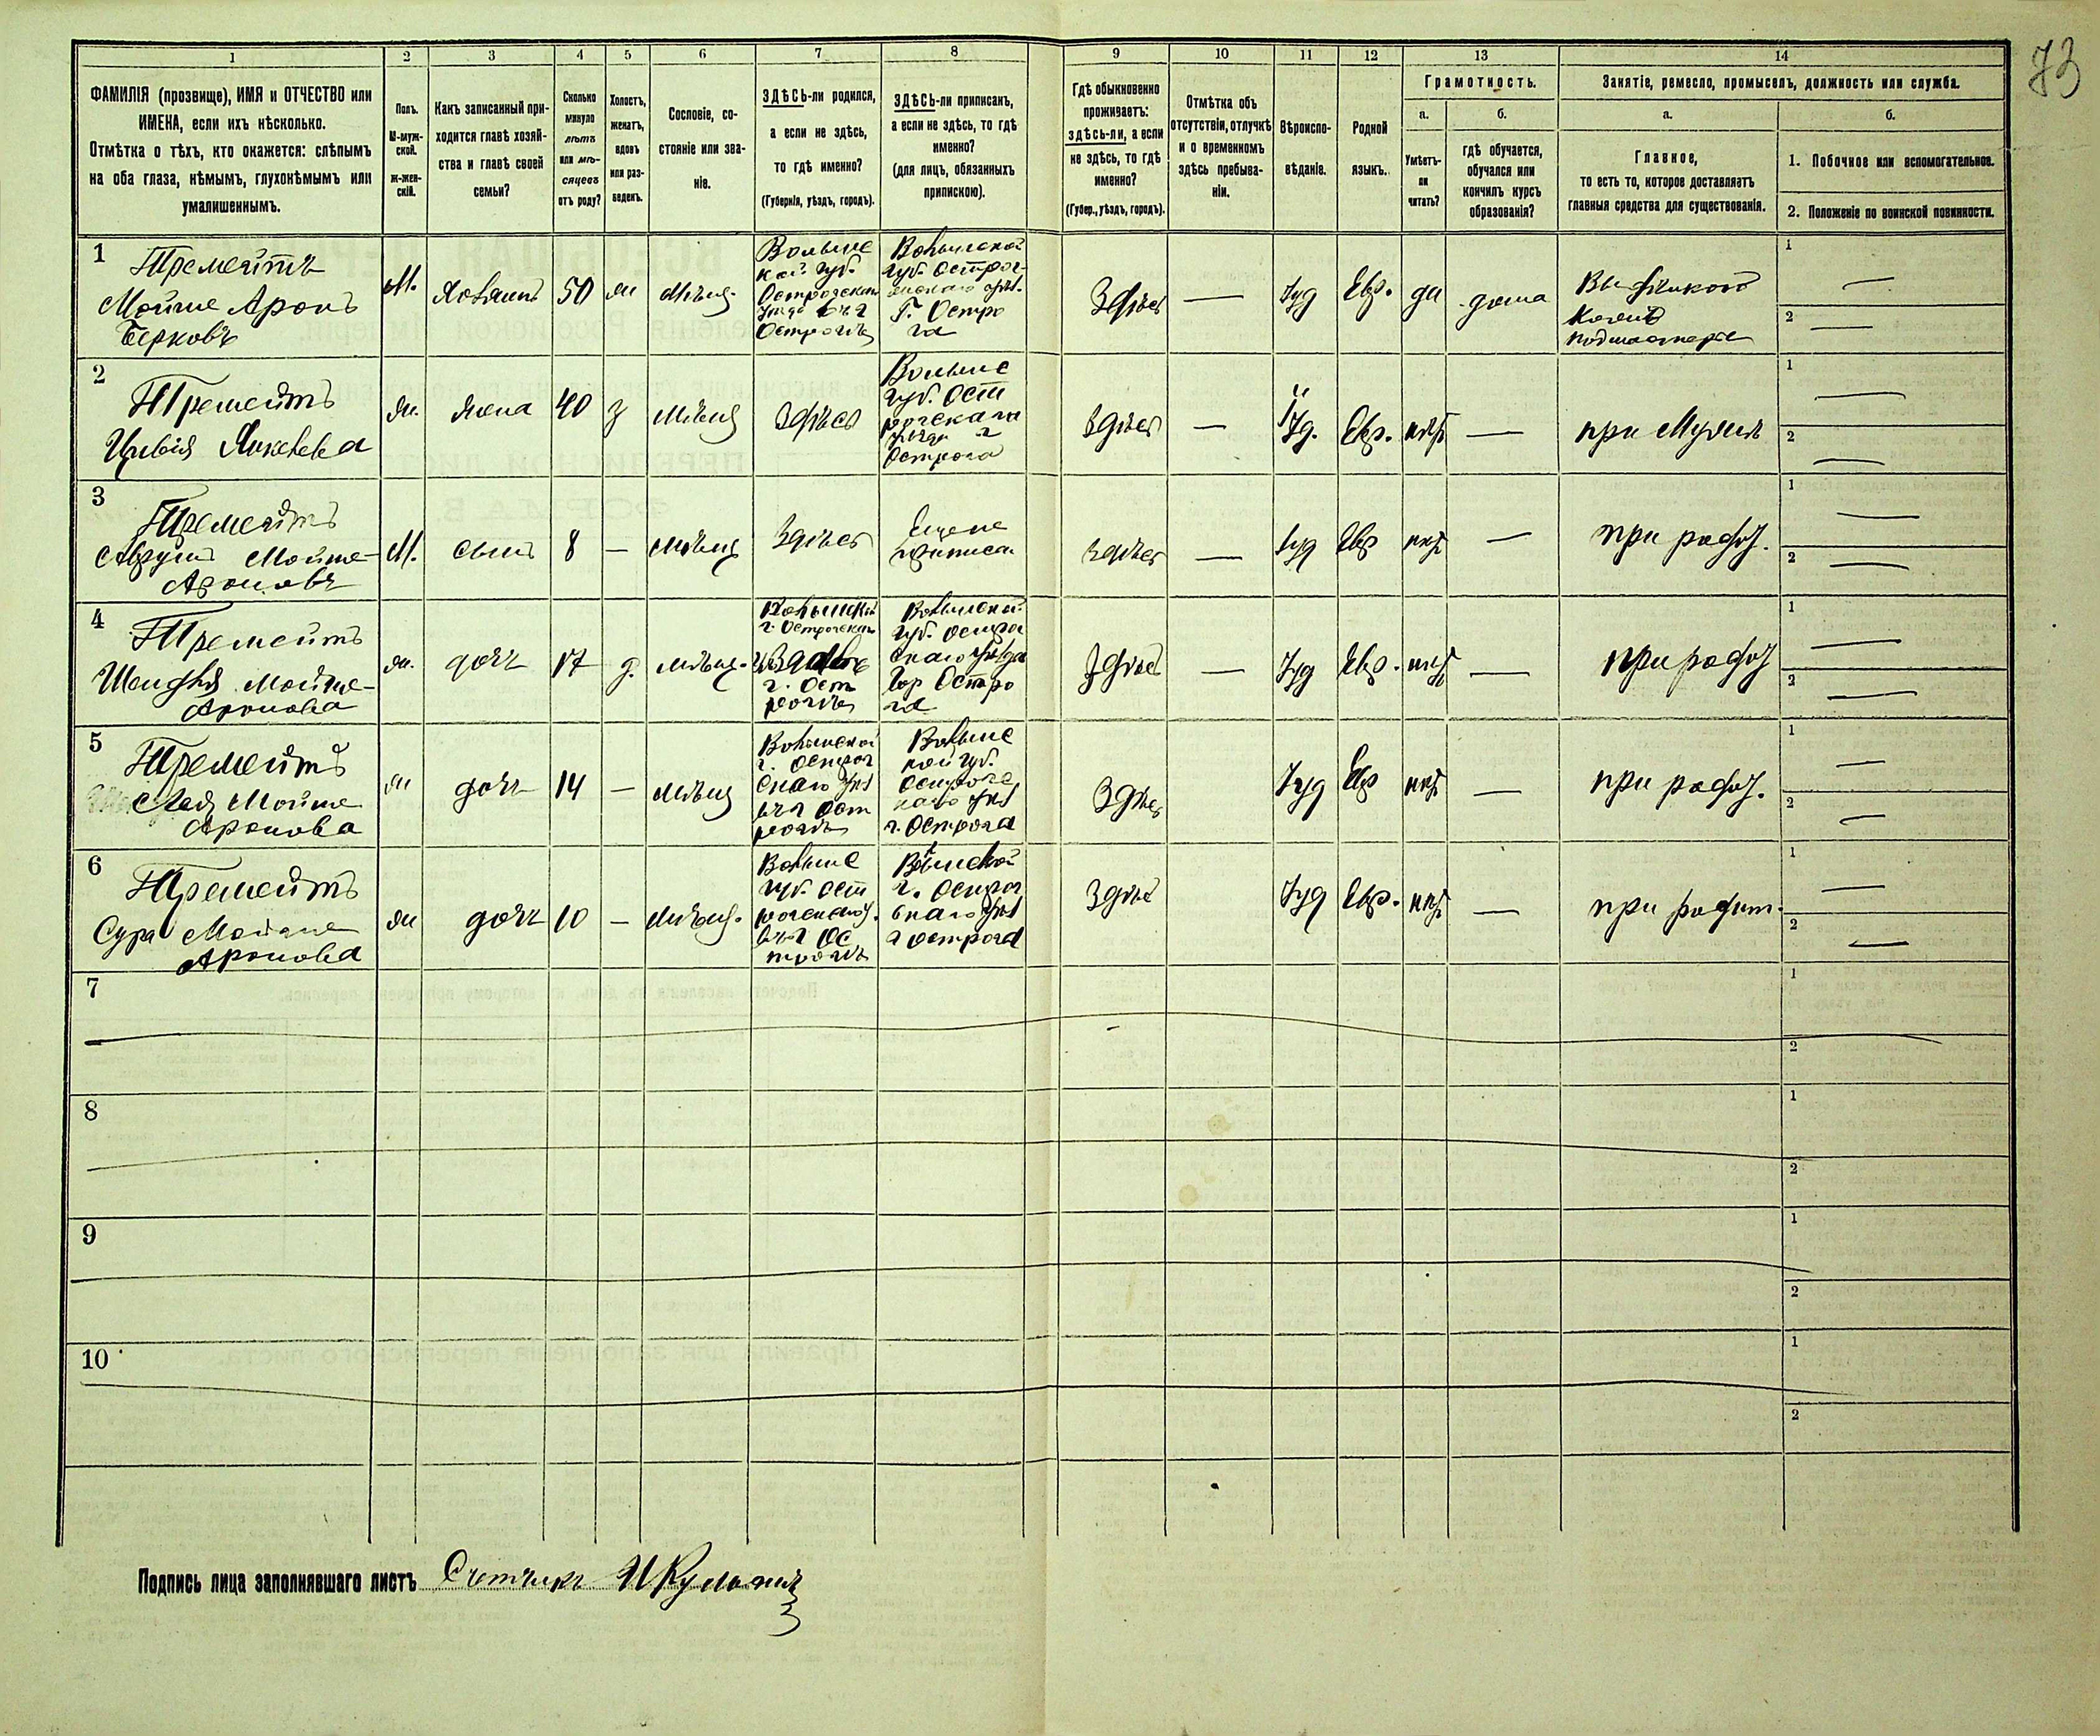 73
1 2 3 4 5 6 7 8 9 10 11 12 13 14
ФАМИЛІЯ (прозвище), ИМЯ и ОТЧЕСТВО или
ИМЕНА, если ихъ нѣсколько.
Отмѣтка о тѣхъ, кто окажется: слѣпымъ
на оба глаза, нѣмымъ, глухонѣмымъ или
умалишеннымъ.
Полъ.
М-муж-
ской.
Ж-жен-
скій.
Какъ записанный при-
ходится главѣ хозяй-
ства и главѣ своей
семьи?
Сколько
минуло
лѣтъ
или мѣ-
сяцевъ
отъ роду?
Холостъ,
женатъ,
вдовъ
или раз-
веденъ.
Сословіе, со-
стояніе или зва-
ніе.
ЗДѢСЬ-ли родился,
а если не здѣсь,
то гдѣ именно?
(Губернія, уѣздъ, городъ).
ЗДѢСЬ-ли приписанъ,
а если не здѣсь, то гдѣ
именно?
(для лицъ, обязанныхъ
припискою).
Гдѣ обыкновенно
проживаетъ:
здѣсь-ли, а если
не здѣсь, то гдѣ
именно?
(Губер., уѣздъ, городъ).
Отмѣтка объ
отсутствіи, отлучкѣ
и о временномъ
здѣсь пребыва-
ніи.
Вѣроиспо-
вѣданіе.
Родной
языкъ.
Грамотность.
а.
Умѣетъ-
ли
читать?
б.
гдѣ обучается,
обучался или
кончилъ курсъ
образованія?
Занятіе, ремесло, промыселъ, должность или служба.
а.
Главное,
то есть то, которое доставляетъ
главныя средства для существованія.
б.
1. Побочное или вспомогательное.
2. Положеніе по воинской повинности.
1
Тремейтъ
Мойше Аронъ
Берковъ
М.
Хозяинъ
50
ж
Мѣщ.
Волынс
кой губ.
Острожскаго
Острогѣ
Волынской
губ. Острог
Г. Остро
га
Здѣсь
—
Іуд
Евр.
да
дома
подмастерье
1 —
2 —
2
Тремейтъ
Цивія
Ж.
жена
40
з
Мѣщ
Здѣсь
Волынс
губ. Ост
рогскаго
г
Острога
Здѣсь
—
Іуд.
Евр.
нѣт
—
при Мужѣ
1 —
2 —
3
Тремейтъ
Аврумъ Мойше-
Ароновъ
М.
сынъ
8
—
Мѣщ
Здѣсь
Еще не
приписан
здѣсь
—
Іуд
Евр
нѣт
—
при родит.
1 —
2 —
4
Тремейтъ
Шендля Мойше-
Аронова
ж.
дочь
17
д.
мѣщ.
Волынской
г. Острогскаго
г. Ост
рогѣ
Волынской
губ. Острог
скаго уѣзда
гор Остро
га
Здѣсь
—
Іуд
Евр.
нѣт
—
при родит
1 —
2 —
5
Тремейтъ
Мойше
Аронова
ж
дочь
14
—
мѣщ
Волынской
г. Острог
скаго уѣз
Ост
рогѣ
Волынс
кой губ.
Острогс
каго уѣз
г. Острога
Здѣсь
Іуд
Евр
нѣт
—
при родит.
1 —
2 —
6
Тремейтъ
Сура Мойше
Аронова
ж
дочь
10
—
мѣщ.
Волынс
губ. Ост
рогской
Ос
трогѣ
Волынской
г. Острог
скаго уѣз
г Острога
Здѣсь
Іуд
Евр.
нѣт
—
при родит.
1 —
2 —
7
1
2
8
1
2
9
1
2
10
1
2
Подпись лица заполнявшаго листъ Счетчикъ